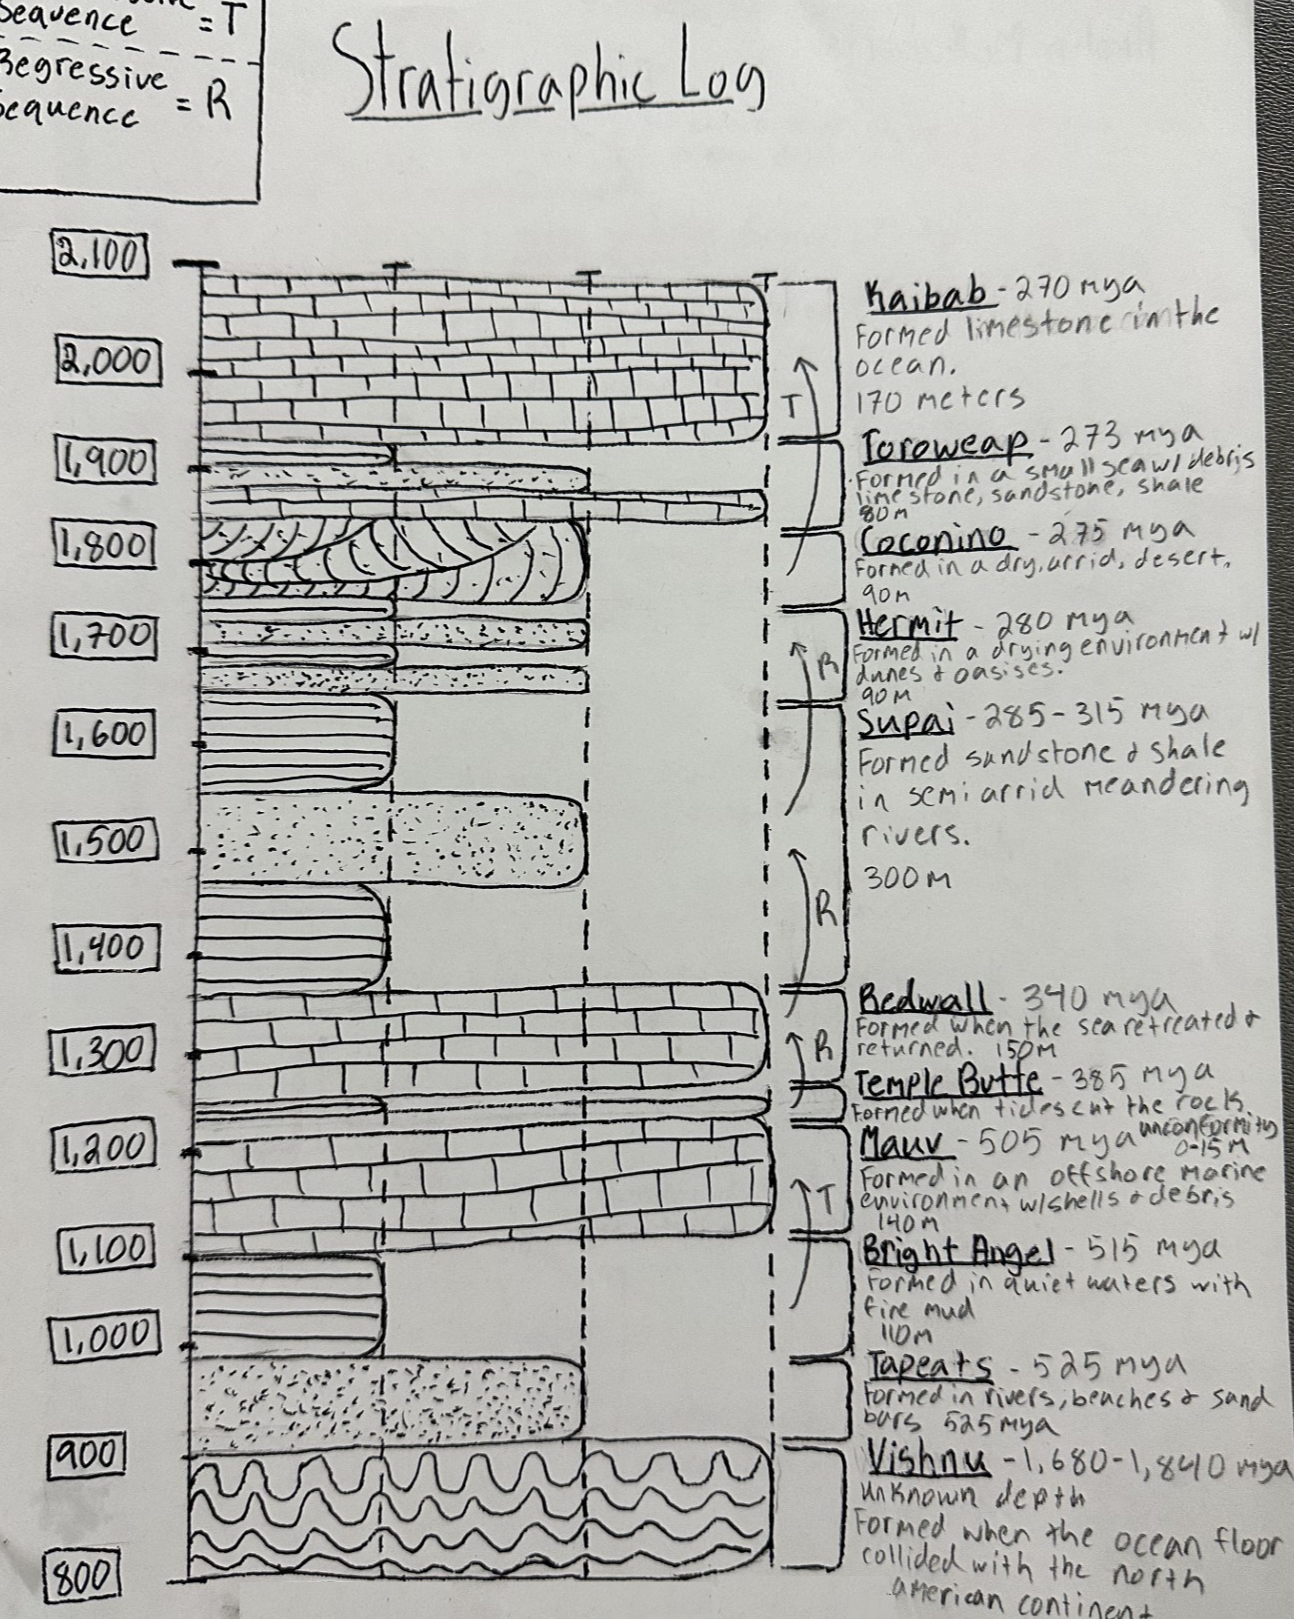 Sequence = T
Regressive
Sequence = R
Stratigraphic Log
2,100
2,000
1,900
1,800
1,700
1,600
1,500
1,400
1,300
1,200
1,100
1,000
900
800
T
R
R
R
T
Kaibab - 270 mya
Formed limestone in the
ocean.
170 meters
Toroweap - 273 mya
Formed in a small sea w/ debris
limestone, sandstone, shale
80m
Coconino - 275 mya
Formed in a dry, arrid, desert.
90m
Hermit - 280 mya
Formed in a drying environment w/
dunes & oasises.
90m
Supai - 285-315 mya
Formed sandstone & shale
in semi arrid meandering
rivers.
300m
Redwall - 340 mya
Formed when the sea retreated &
returned. 150m
Temple Butte - 385 mya
Formed when tides cut the rock
unconformity
0-15m
Mauv - 505 mya
Formed in an offshore marine
environment w/shells & debris
140m
Bright Angel - 515 mya
Formed in quiet waters with
fire mud
110m
Tapeats - 525 mya
Formed in rivers, beaches & sand
bars 525 mya
Vishnu - 1,680-1,840 mya
unknown depth
Formed when the ocean floor
collided with the north
american continent